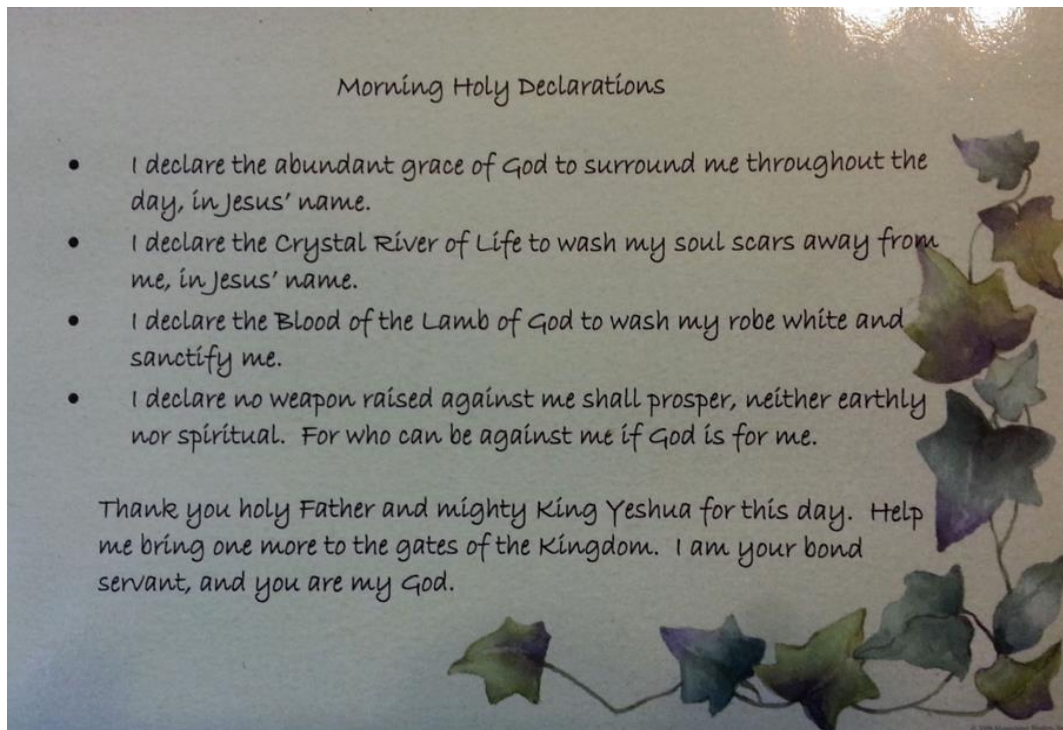 Morning Holy Declarations
• I declare the abundant grace of God to surround me throughout the
day, in Jesus' name.
• I declare the Crystal River of Life to wash my soul scars away from
me, in Jesus' name.
• I declare the Blood of the Lamb of God to wash my robe white and
sanctify me.
• I declare no weapon raised against me shall prosper, neither earthly
nor spiritual. For who can be against me if God is for me.
Thank you holy Father and mighty King Yeshua for this day. Help
me bring one more to the gates of the Kingdom. I am your bond
servant, and you are my God.